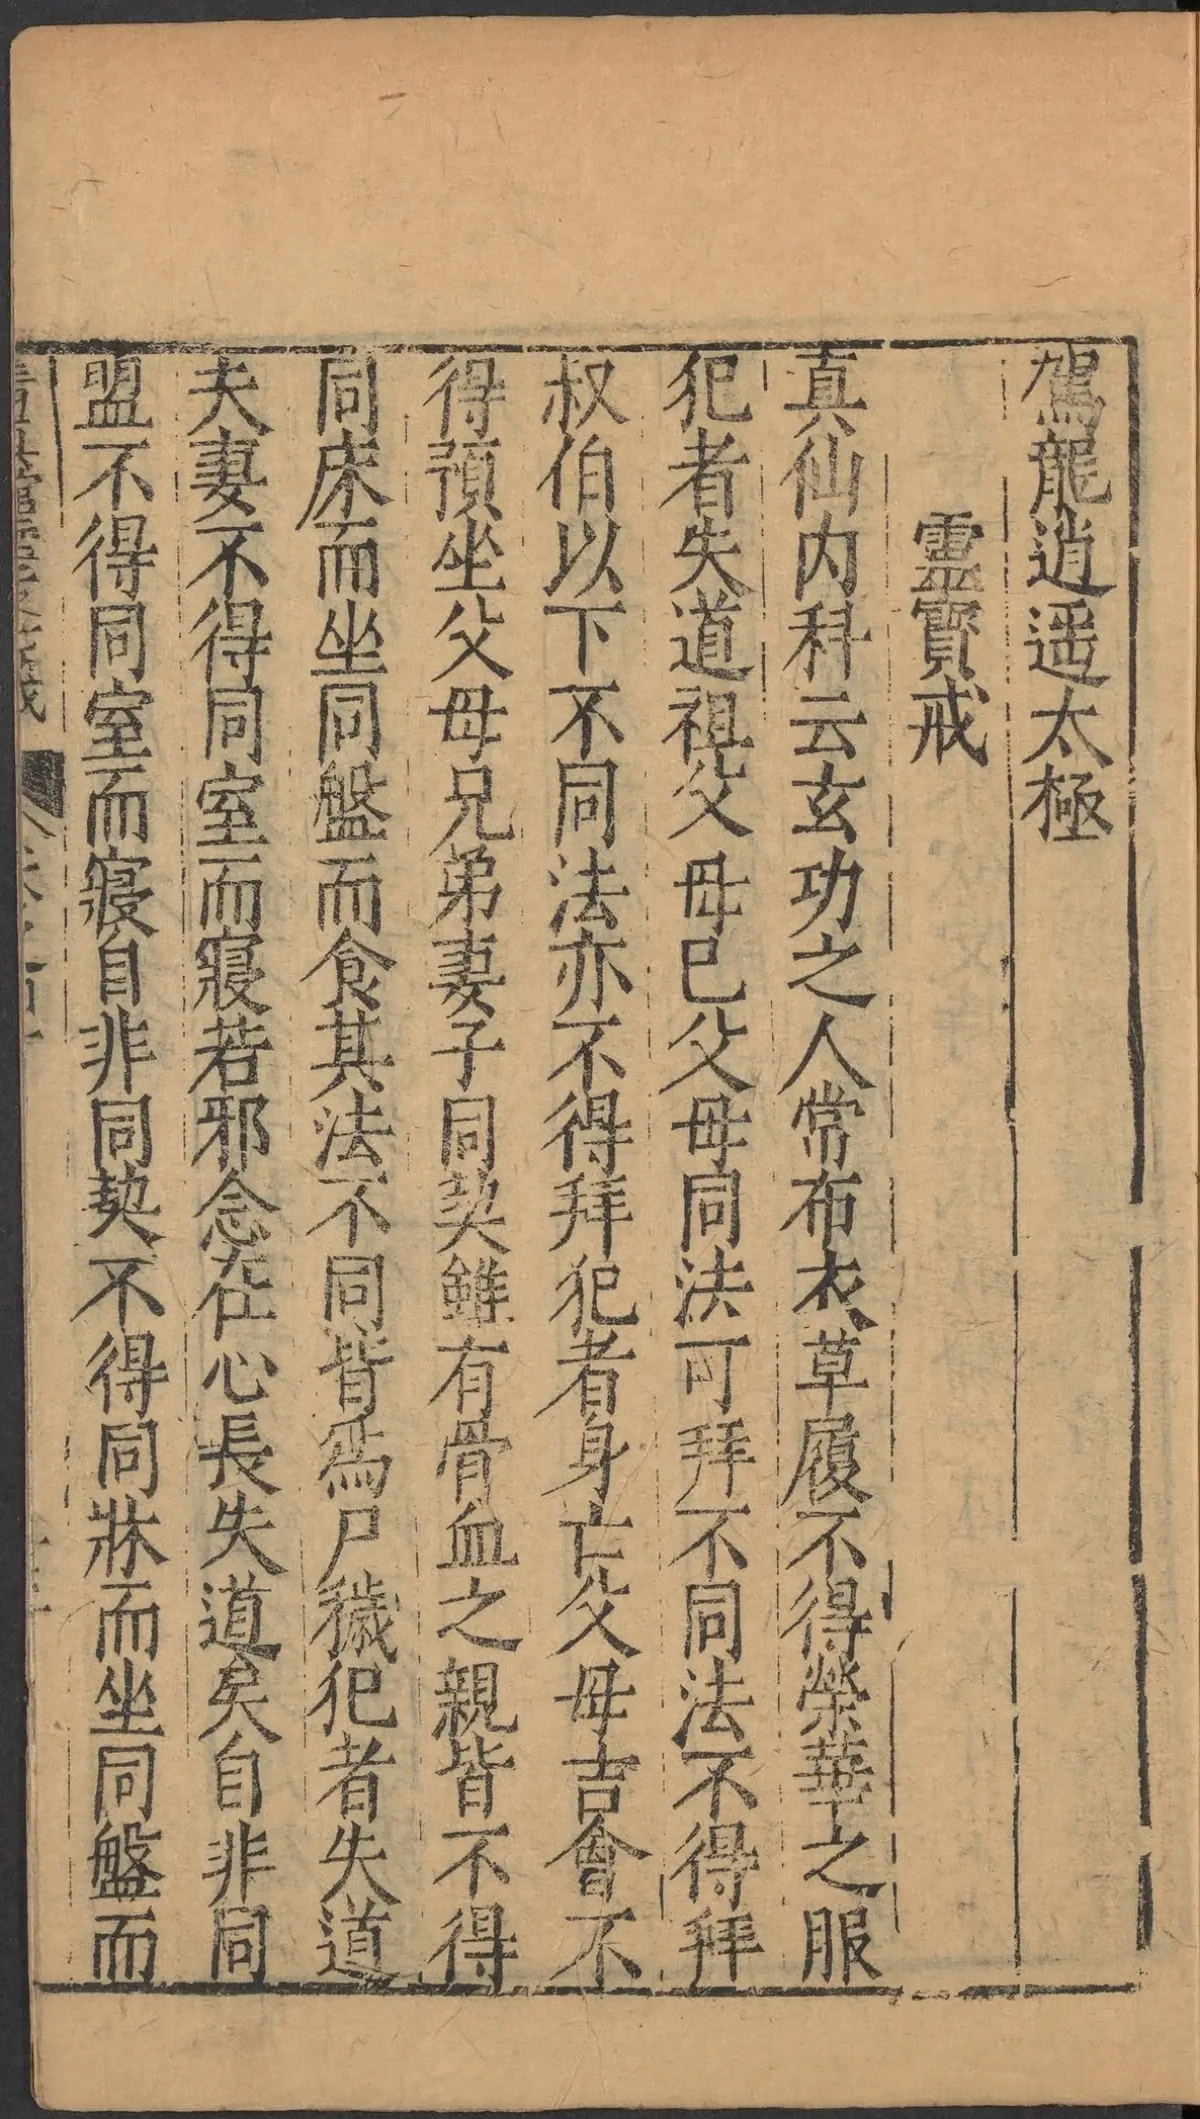 駕龍逍遥太極
靈寳戒
真仙内科云玄功之人常布衣草履不得榮華之服
犯者失道視父母已父母同法可拜不同法不得拜
叔伯以下不同法亦不得拜犯者身亡父母吉會不
得預坐父母兄弟妻子同契雖有骨血之親皆不得
同床而坐同盤而食其法不同皆爲尸穢犯者失道
夫妻不得同室而寢若邪念在心長失道矣自非同
盟不得同室而寢自非同契不得同牀而坐同盤而